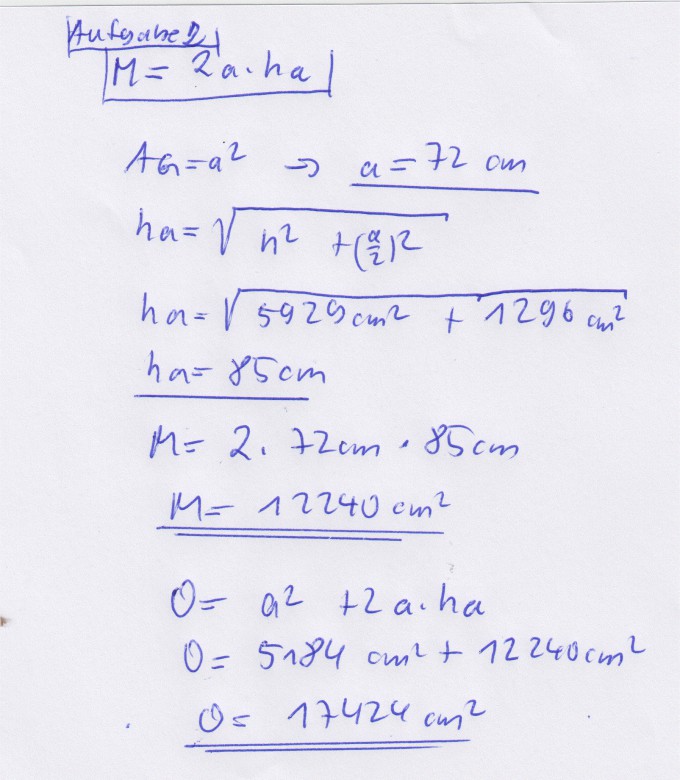 Aufgabe 2
M = 2a · ha
AG = a² → a = 72 cm
ha = √(h² + (a/2)²)
ha = √(5929 cm² + 1296 cm²)
ha = 85 cm
M = 2 · 72cm · 85cm
M = 12240 cm²
O = a² + 2a · ha
O = 5184 cm² + 12240 cm²
O = 17424 cm²